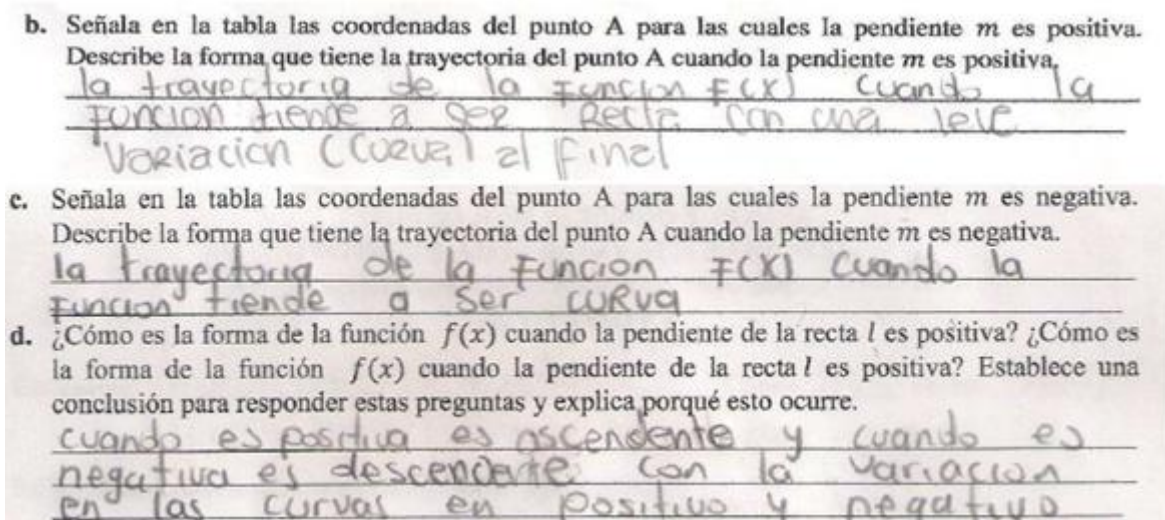 b. Señala en la tabla las coordenadas del punto A para las cuales la pendiente m es positiva.
Describe la forma que tiene la trayectoria del punto A cuando la pendiente m es positiva.
la trayectoria de la Funcion F(X) cuando la
Funcion tiende a ser Recta con una leve
Variacion (Curva) al Final
c. Señala en la tabla las coordenadas del punto A para las cuales la pendiente m es negativa.
Describe la forma que tiene la trayectoria del punto A cuando la pendiente m es negativa.
la trayectoria de la Funcion F(X) cuando la
Funcion tiende a ser curva
d. ¿Cómo es la forma de la función f(x) cuando la pendiente de la recta l es positiva? ¿Cómo es
la forma de la función f(x) cuando la pendiente de la recta l es positiva? Establece una
conclusión para responder estas preguntas y explica porqué esto ocurre.
cuando es positiva es ascendente y cuando es
negativa es descendente con la variacion
en las curvas en positivo y negativo